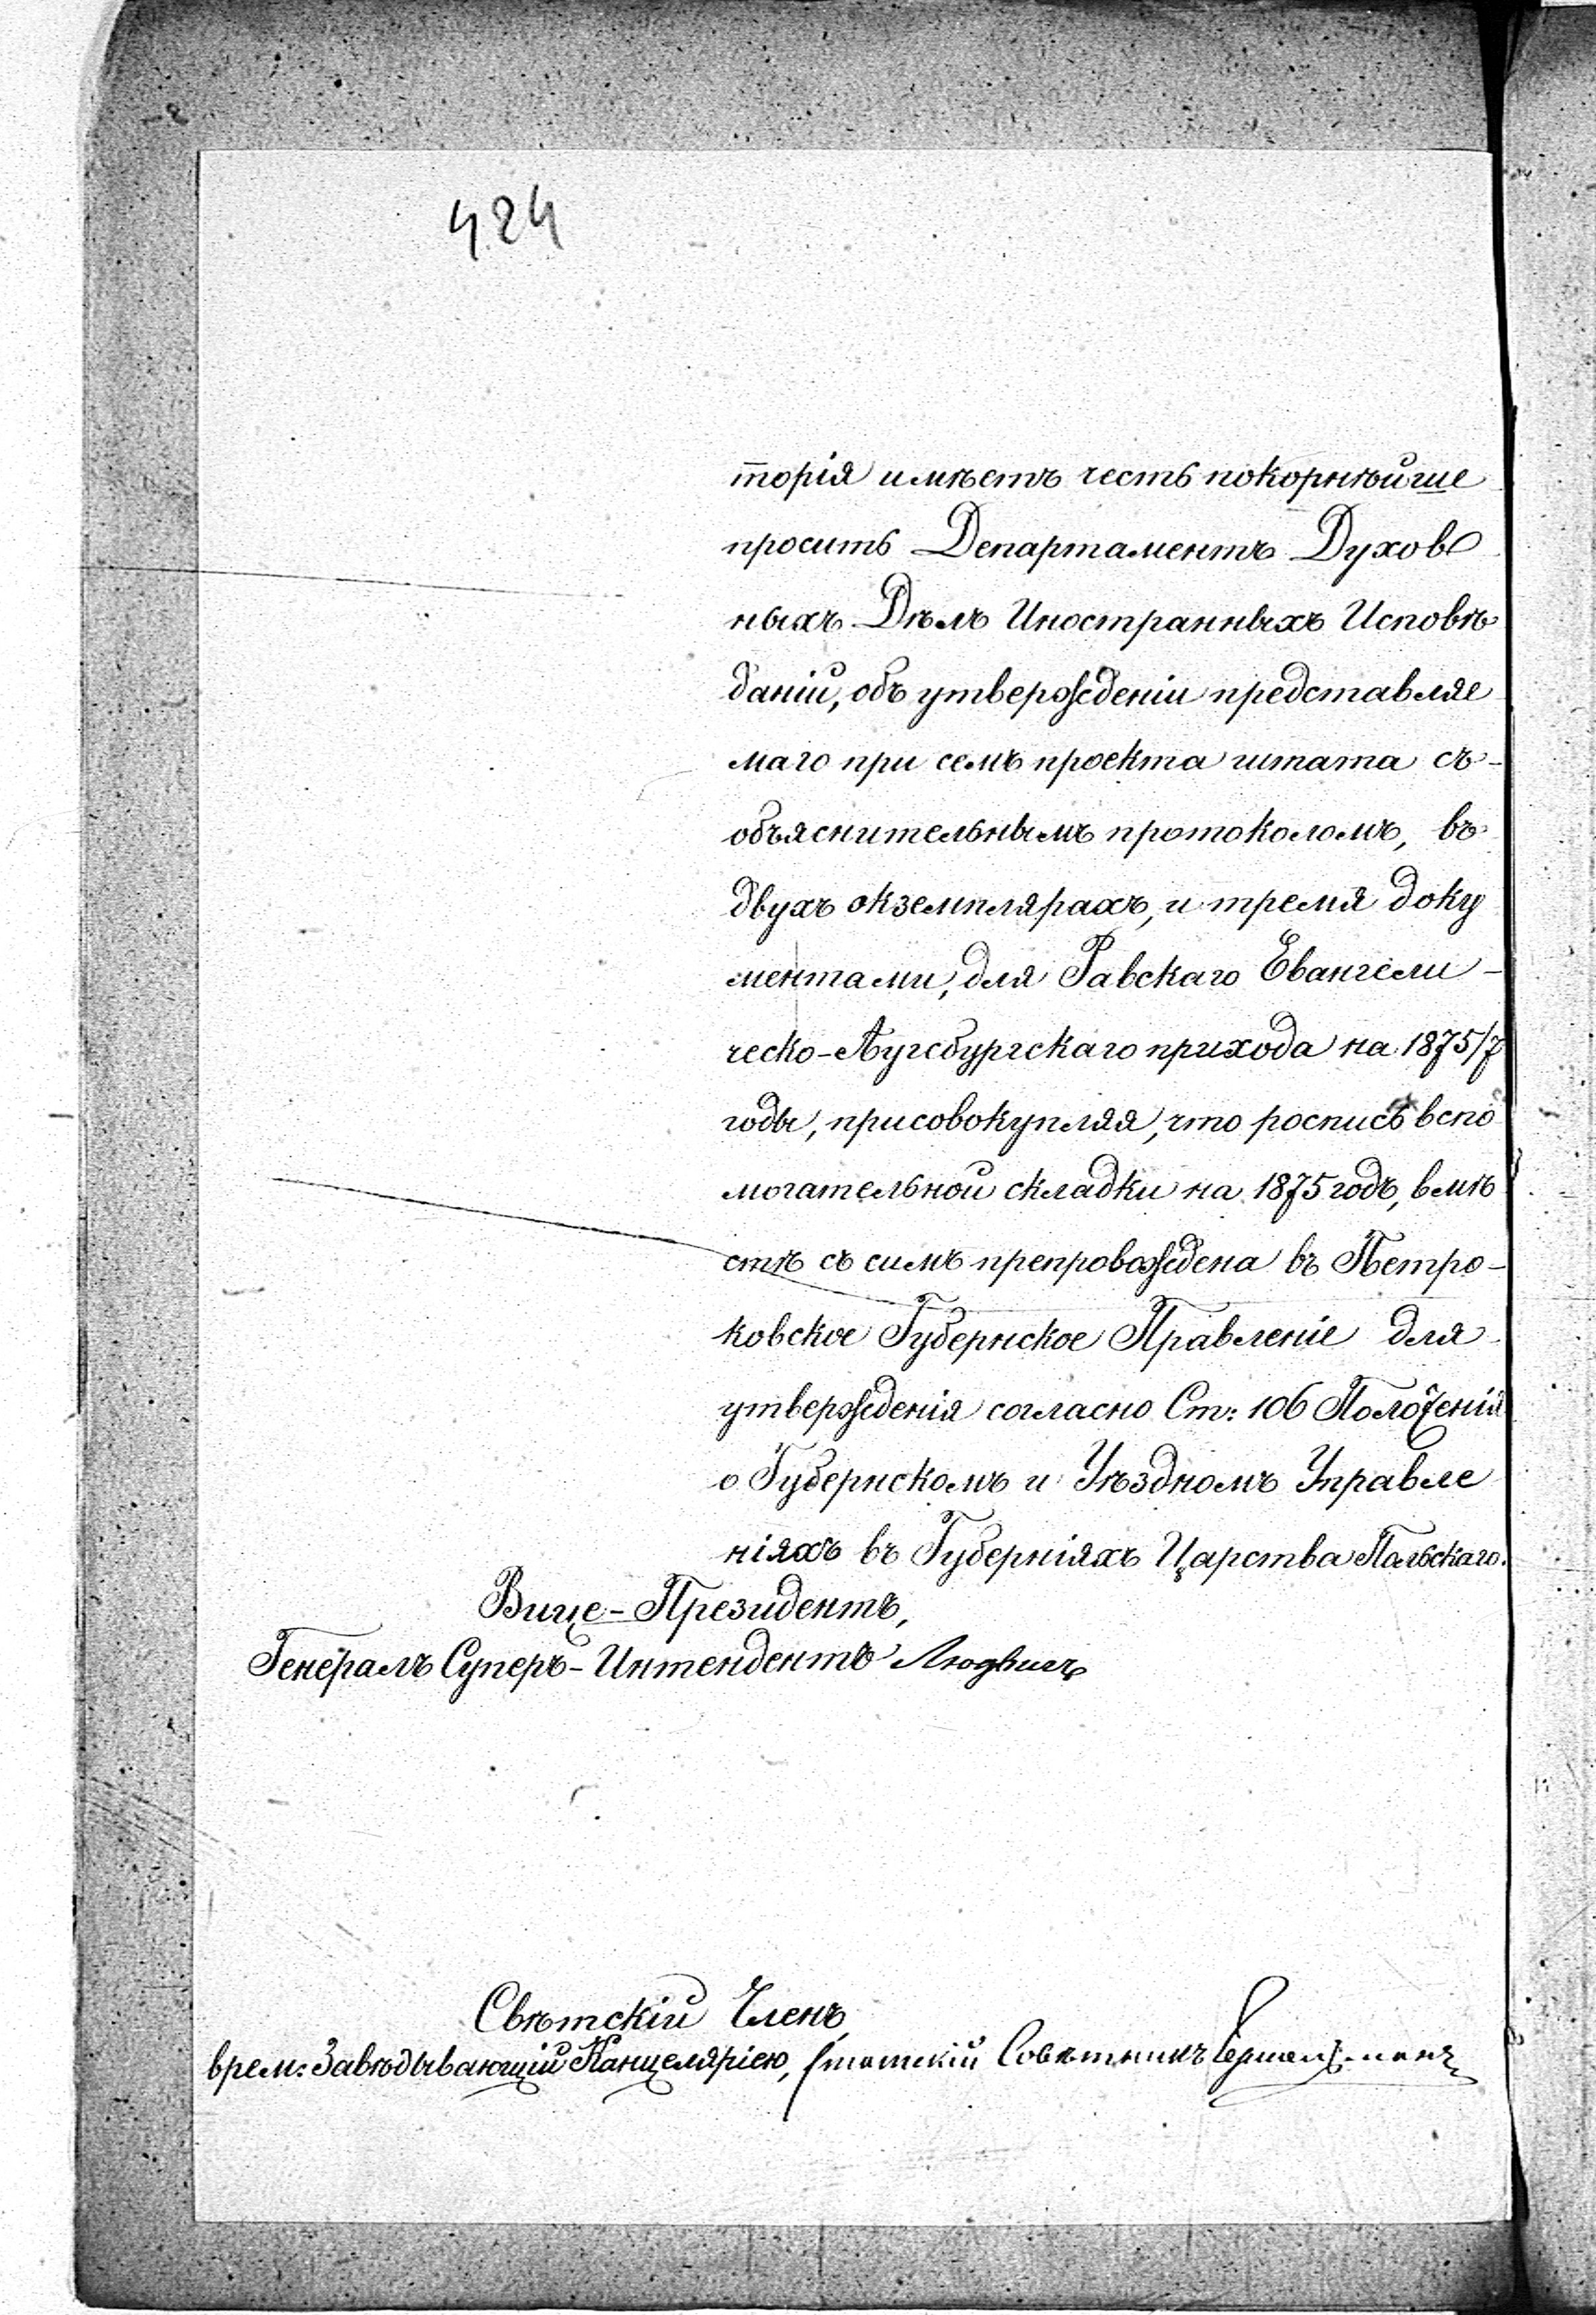 424
торія имѣетъ честь покорнѣйше
просить Департаментъ Духов
ныхъ Дѣлъ Иностранныхъ Исповѣ
даній, объ утвержденіи представляе
маго при семъ проекта штата съ-
объяснительнымъ протоколомъ, въ
двухъ экземплярахъ, и тремя доку
ментами, для Равскаго Евангели-
ческо-Аугсбургскаго прихода на 1875/7
годы, присовокупляя, что роспись вспо
могательной складки на 1875 годъ, вмѣ
стѣ съ симъ препровождена въ Петро-
ковское Губернское Правленіе для
утвержденія согласно Ст: 106 Положенія
о Губернскомъ и Уѣздномъ Управле
ніяхъ въ Губерніяхъ Царства Польскаго.
Вице-Президентъ,
Генералъ Суперъ-Интендентъ Людвигъ
Свѣтскій Членъ,
врем: Завѣдывающій Канцеляріею, Статскій Совѣтникъ